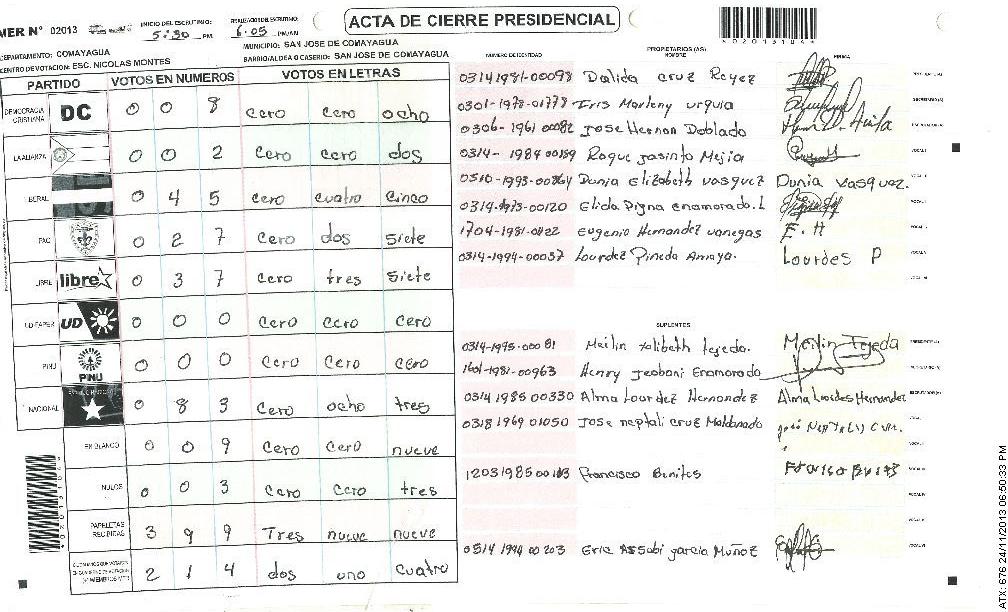 ACTA DE CIERRE PRESIDENCIAL
MER N° 02013
INICIO DEL ESCRUTINIO: 5:30 PM
6:05 PM/AM
DEPARTAMENTO: COMAYAGUA
MUNICIPIO: SAN JOSE DE COMAYAGUA
CENTRO DE VOTACION: ESC. NICOLAS MONTES
BARRIO/ALDEA O CASERIO: SAN JOSE DE COMAYAGUA
PARTIDO VOTOS EN NUMEROS VOTOS EN LETRAS
DEMOCRACIA CRISTIANA DC 0 0 8 cero cero ocho
LA ALIANZA 0 0 2 cero cero dos
BERAL 0 4 5 cero cuatro cinco
PAC 0 2 7 cero dos siete
LIBRE libre 0 3 7 cero tres siete
UD-FAPER UD 0 0 0 cero cero cero
PINU PINU 0 0 0 cero cero cero
NACIONAL 0 8 3 cero ocho tres
EN BLANCO 0 0 9 cero cero nueve
NULOS 0 0 3 cero cero tres
PAPELETAS RECIBIDAS 3 9 9 Tres nueve nueve
2 1 4 dos uno cuatro
NUMERO DE IDENTIDAD PROPIETARIOS (AS) NOMBRE FIRMA
0314 1981-00098 Dalida cruz Reyez
0301-1978-01778 Iris Marleny urquia
0306-1961 00082 Jose Hernon Doblado
0314-1984 00159 Roque jasinto Mejia
0310-1993-00264 Dunia Elizabeth vasquez Dunia Vasquez.
0314-1973-00120 Elida Digna enamorado.L
1704-1981-0422 Eugenio Hernandez vanegas E.H
0314-1994-00037 Lourdez Pineda Amaya. Lourdes P
SUPLENTES
0314-1995-000 81 Meilin Yolibeth tejeda. Meilin Tejeda
1601-1981-00963 Henry Jeobani Enamorado
0314 1985 00330 Alma Lourdez Hernandez Alma Lourdes Hernandez
0318 1969 01050 Jose neptali cruz Maldonado
1203 1985 00103 Francisco Benites
0314 1994 00203 Eric Assabi garcia Muñoz
4020131044
ATX: 676 24/11/2013 06:50:33 PM